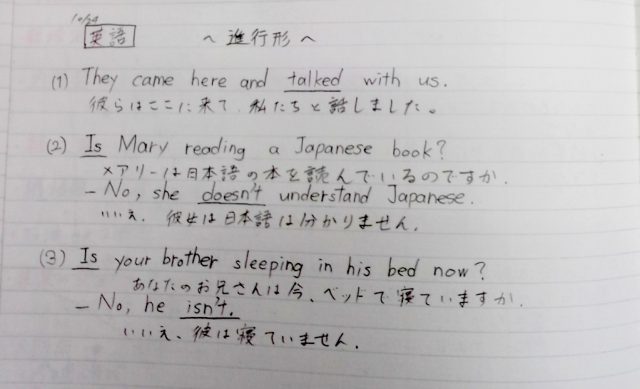 10/24
英語 〜進行形〜
(1) They came here and talked with us.
彼らはここに来て、私たちと話しました。
(2) Is Mary reading a Japanese book?
メアリーは日本語の本を読んでいるのですか.
- No, she doesn't understand Japanese.
いいえ、彼女は日本語は分かりません.
(3) Is your brother sleeping in his bed now?
あなたのお兄さんは今、ベッドで寝ていますか.
- No, he isn't.
いいえ、彼は寝ていません.